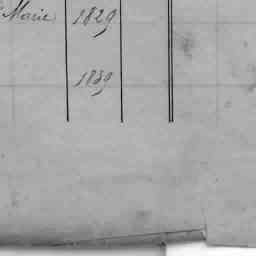 Marie 1829
1839